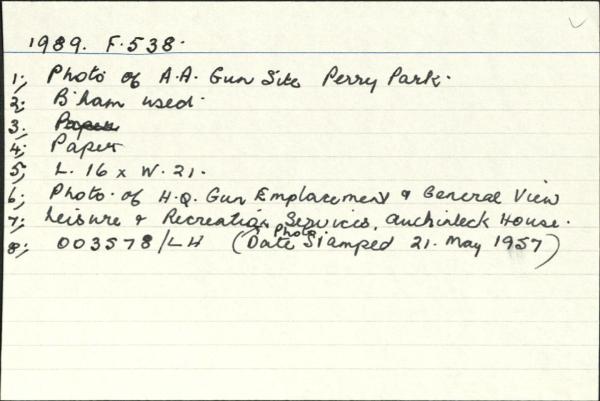 1989. F.538.
1; Photo of A.A. Gun Site Perry Park.
2; B'ham used.
3; Paper
4; Paper
5; L. 16 x W. 21.
6; Photo. of H.Q. Gun Emplacement & General View
7; Leisure & Recreation Services, Auchinleck House.
8; 003578/LH (Date photo Stamped 21. May 1957)